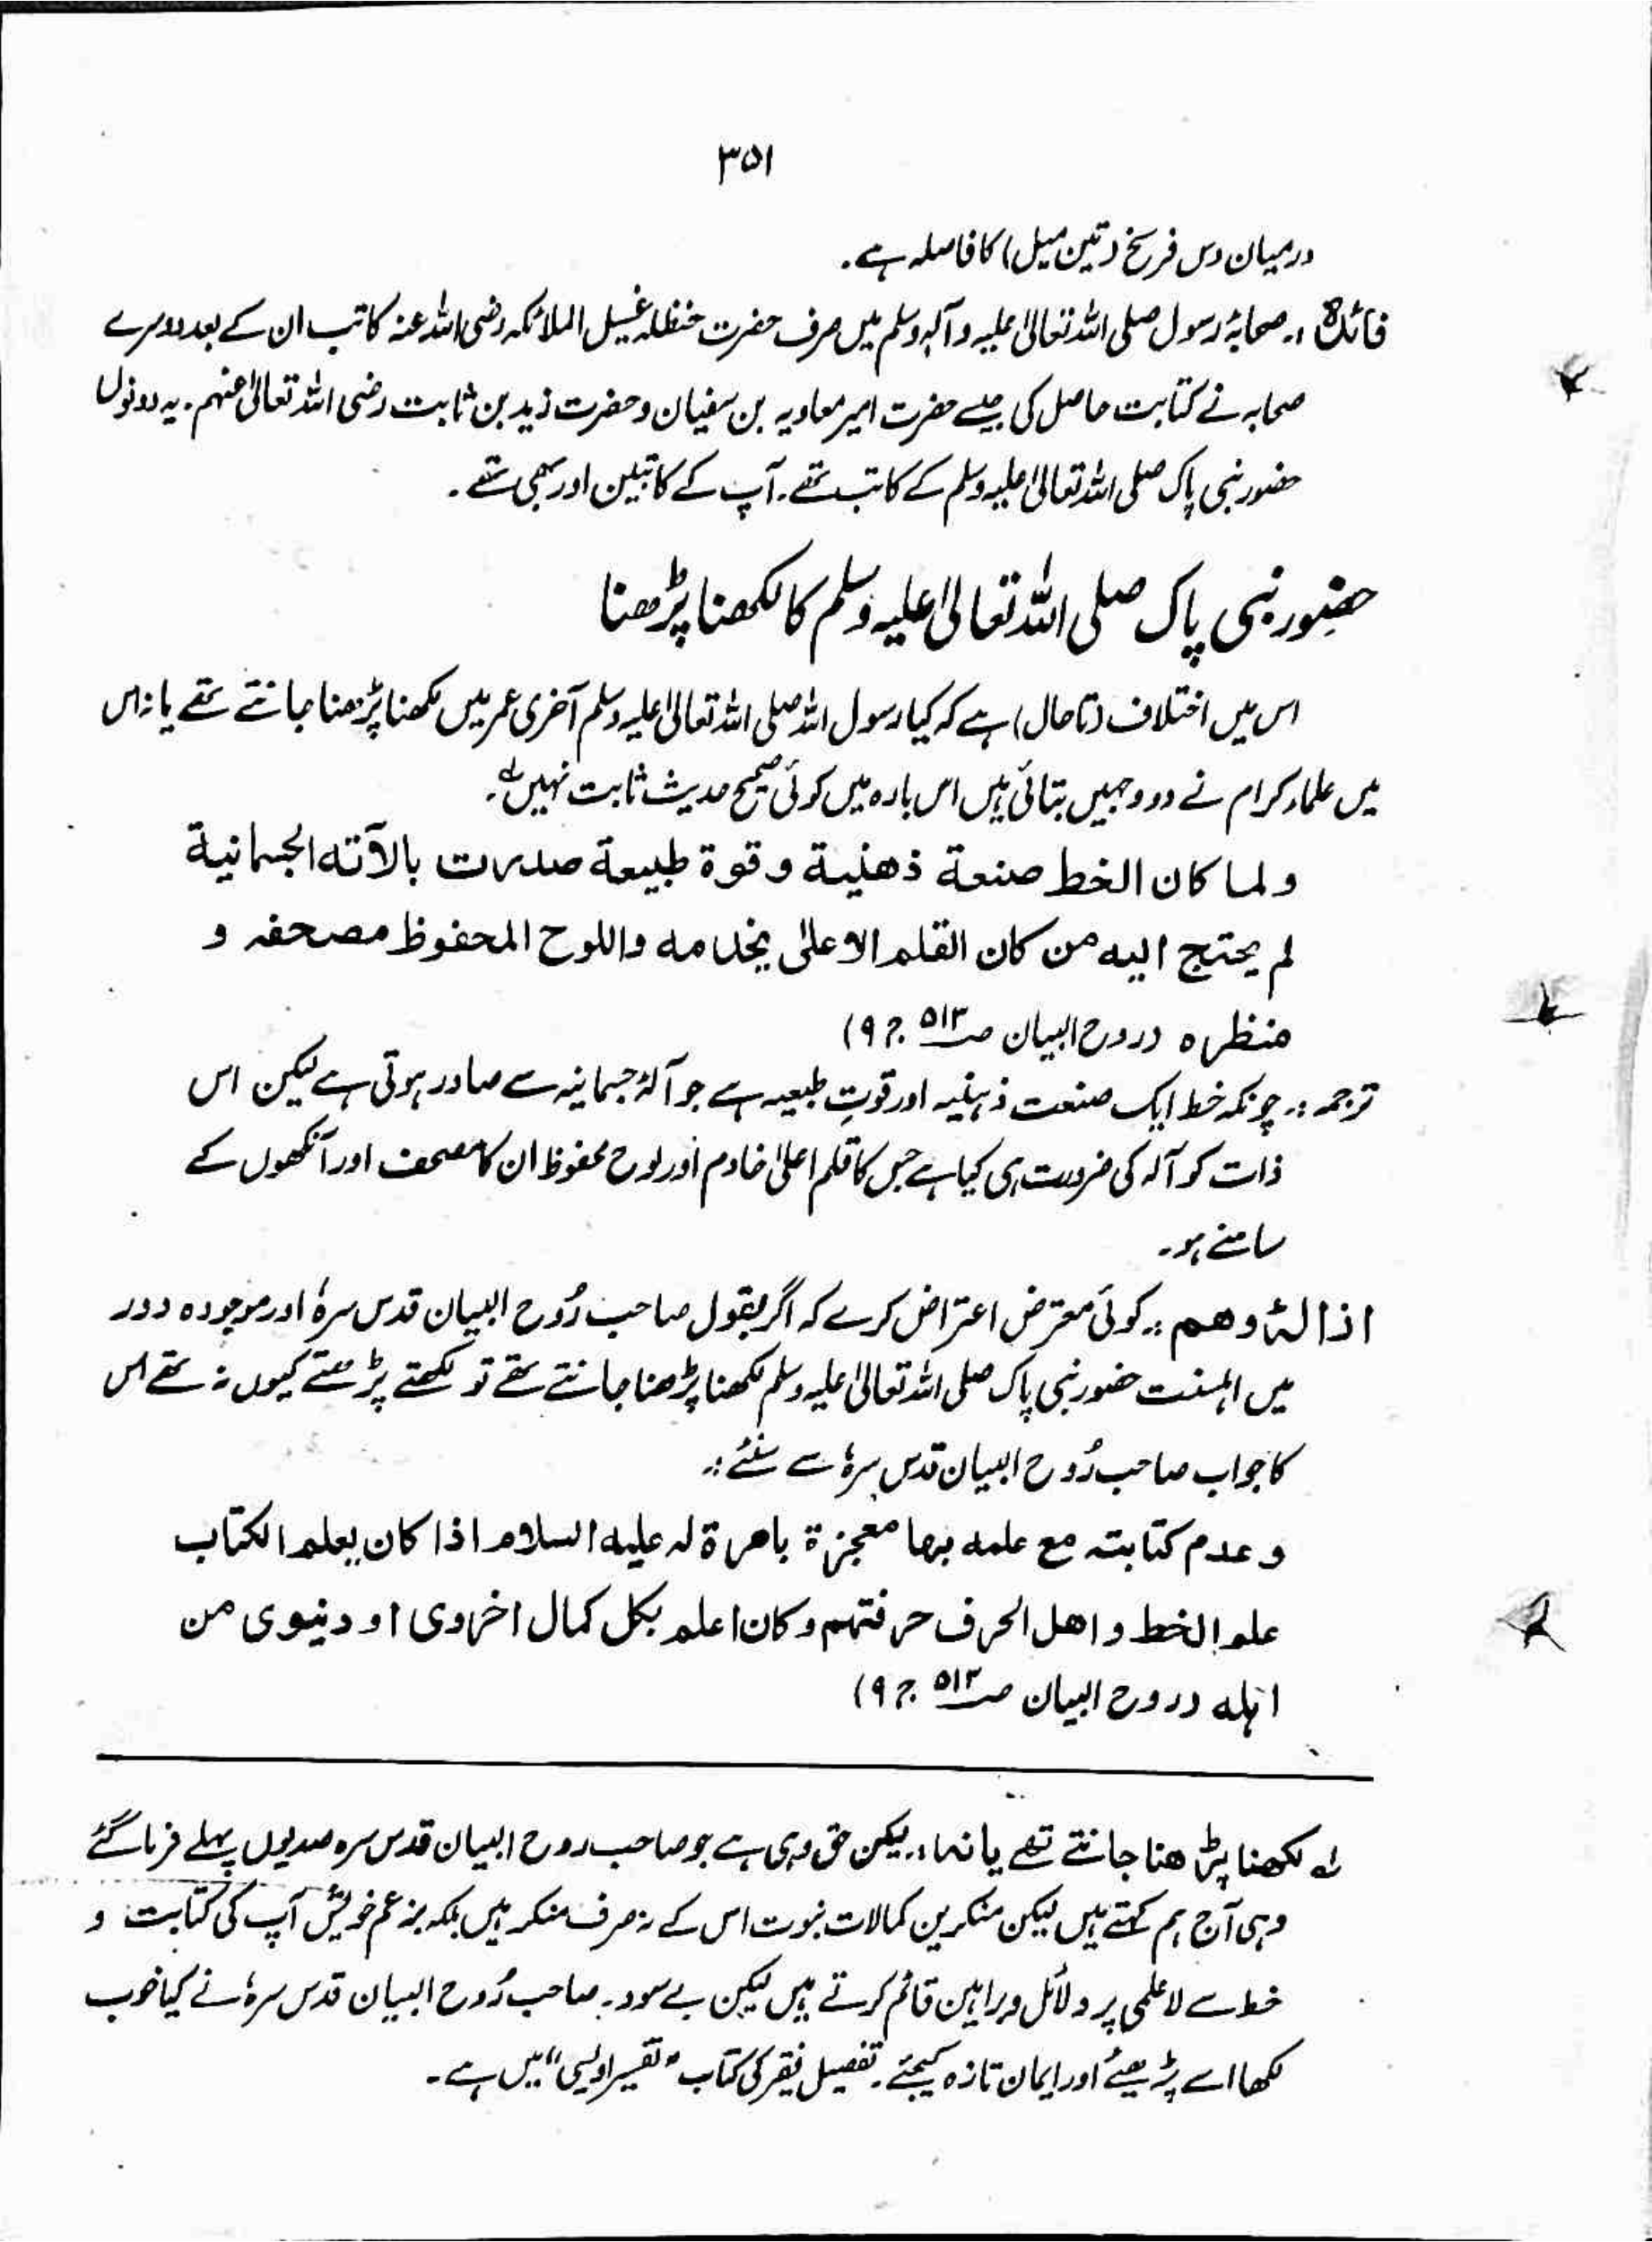 ۳۵۱
درمیان دس فرسخ (تین میل) کا فاصلہ ہے۔
فائدہ :۔ صحابۂ رسول صلی اللہ تعالیٰ علیہ وآلہٖ وسلم میں صرف حضرت حنظلہ غسیل الملائکہ رضی اللہ عنہ کاتب ان کے بعد دوسرے
صحابہ نے کتابت حاصل کی جیسے حضرت امیر معاویہ بن سفیان و حضرت زید بن ثابت رضی اللہ تعالیٰ عنہم۔ یہ دونوں
حضور نبی پاک صلی اللہ تعالیٰ علیہ وسلم کے کاتب تھے۔ آپ کے کاتبین اور بھی تھے۔
حضور نبی پاک صلی اللہ تعالیٰ علیہ وسلم کا لکھنا پڑھنا
اس میں اختلاف (تاحال) ہے کہ کیا رسول اللہ صلی اللہ تعالیٰ علیہ وسلم آخری عمر میں لکھنا پڑھنا جانتے تھے یا نہ اس
میں علماء کرام نے دو وجہیں بتائی ہیں اس بارہ میں کوئی صحیح حدیث ثابت نہیں لہ۔
ولما کان الخط صنعة ذهنية وقوة طبيعة صدرت بالآته الجسمانية
لم يحتج اليه من كان القلم الاعلىٰ يخدمه واللوح المحفوظ مصحفہ و
منظرہ (روح البیان صـ ۵۱۳ ج ۹)
ترجمہ :۔ چونکہ خط ایک صنعت ذہنیہ اور قوتِ طبعیہ ہے جو آلۂ جسمانیہ سے صادر ہوتی ہے لیکن اس
ذات کو آلہ کی ضرورت ہی کیا ہے جس کا قلم اعلیٰ خادم اور لوح محفوظ ان کا مصحف اور آنکھوں کے
سامنے ہو۔
ازالۂ وھم :۔ کوئی معترض اعتراض کرے کہ اگر بقول صاحب رُوح البیان قدس سرہٗ اور موجودہ دور
میں اہلسنت حضور نبی پاک صلی اللہ تعالیٰ علیہ وسلم لکھنا پڑھنا جانتے تھے تو لکھتے پڑھتے کیوں نہ تھے اس
کا جواب صاحب رُوح البیان قدس سرہٗ سے سنئے :۔
وعدم کتابتہ مع علمه بها معجزة باهرة لہ علیه السلام اذا کان یعلم الکتاب
علم الخط واهل الحرف حرفتهم وکان اعلم بکل کمال اخروی او دنیوی من
اہلہ (روح البیان صـ ۵۱۳ ج ۹)
لہ لکھنا پڑھنا جانتے تھے یا نہ۔ لیکن حق وہی ہے جو صاحب روح البیان قدس سرہ صدیوں پہلے فرما گئے
وہی آج ہم کہتے ہیں لیکن منکرین کمالات نبوت اس کے نہ صرف منکر ہیں بلکہ بزعم خویش آپ کی کتابت و
خط سے لاعلمی پر دلائل و براہین قائم کرتے ہیں لیکن بے سود۔ صاحب رُوح البیان قدس سرہٗ نے کیا خوب
لکھا اسے پڑھیئے اور ایمان تازہ کیجئے۔ تفصیل فقیر کی کتاب "تفسیر اویسی" میں ہے۔